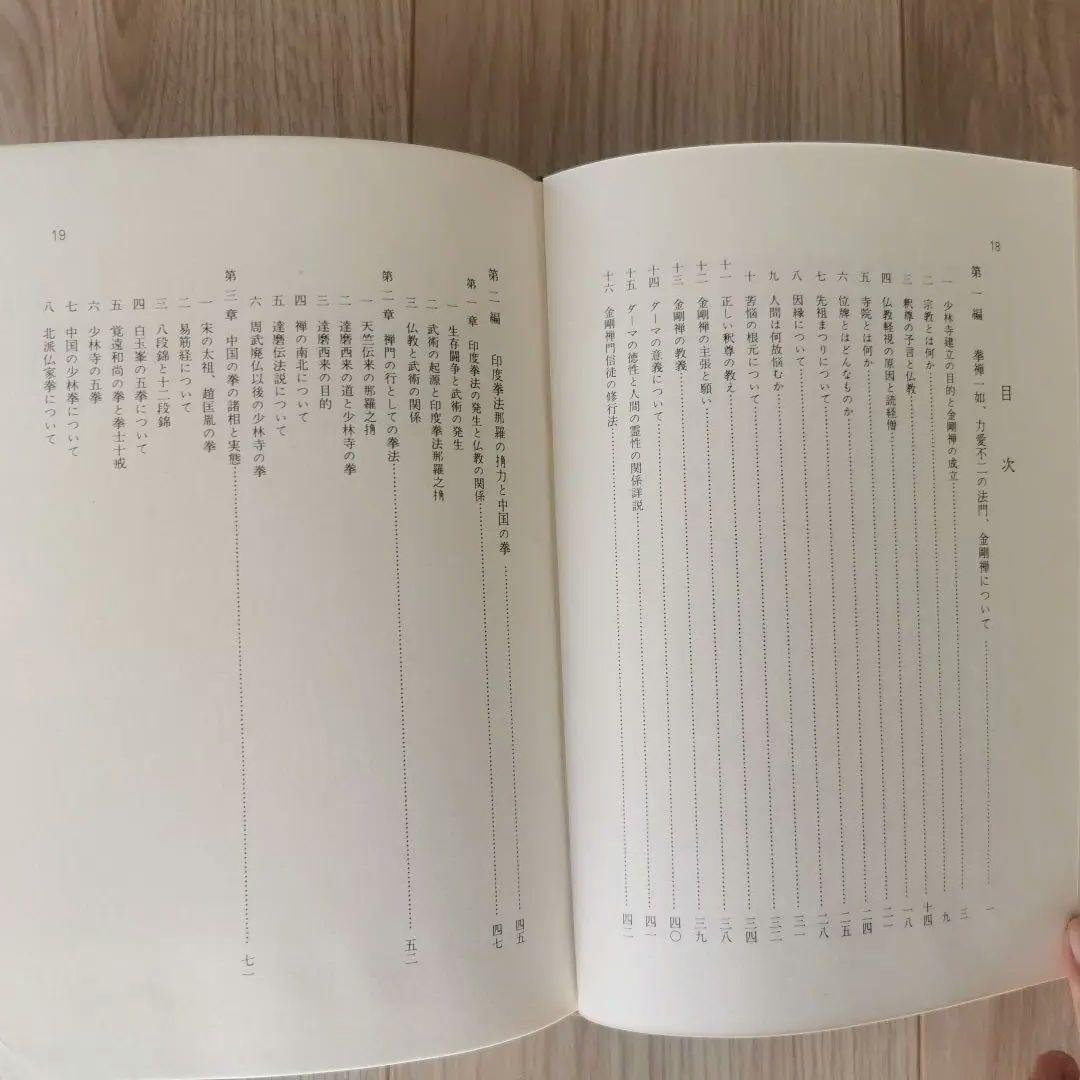 18
目次
第一編　拳禅一如、力愛不二の法門、金剛禅について……一
一　少林寺建立の目的と金剛禅の成立……三
二　宗教とは何か……九
三　釈尊の予言と仏教……十四
四　仏教軽視の原因と読経僧……一八
五　寺院とは何か……二一
六　位牌とはどんなものか……二四
七　先祖まつりについて……二五
八　因縁について……二八
九　人間は何故悩むか……三一
十　苦悩の根元について……三二
十一　正しい釈尊の教え……三四
十二　金剛禅の主張と願い……三八
十三　金剛禅の教義……三九
十四　ダーマの意義について……四〇
十五　ダーマの徳性と人間の霊性の関係詳説……四一
十六　金剛禅門信徒の修行法……四二
19
第二編　印度拳法那羅の捔力と中国の拳……四五
第一章　印度拳法の発生と仏教の関係……四七
一　生存闘争と武術の発生
二　武術の起源と印度拳法那羅之捔
三　仏教と武術の関係
第二章　禅門の行としての拳法……五二
一　天竺伝来の那羅之捔
二　達磨西来の道と少林寺の拳
三　達磨西来の目的
四　禅の南北について
五　達磨伝法説について
六　周武廃仏以後の少林寺の拳
第三章　中国の拳の諸相と実態……七一
一　宋の太祖、趙匡胤の拳
二　易筋経について
三　八段錦と十二段錦
四　白玉峯の五拳について
五　覚遠和尚の拳と拳士十戒
六　少林寺の五拳
七　中国の少林拳について
八　北派仏家拳について